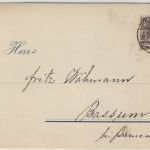 Herrn
Fritz Böhmann
Bassum
bei Bremen